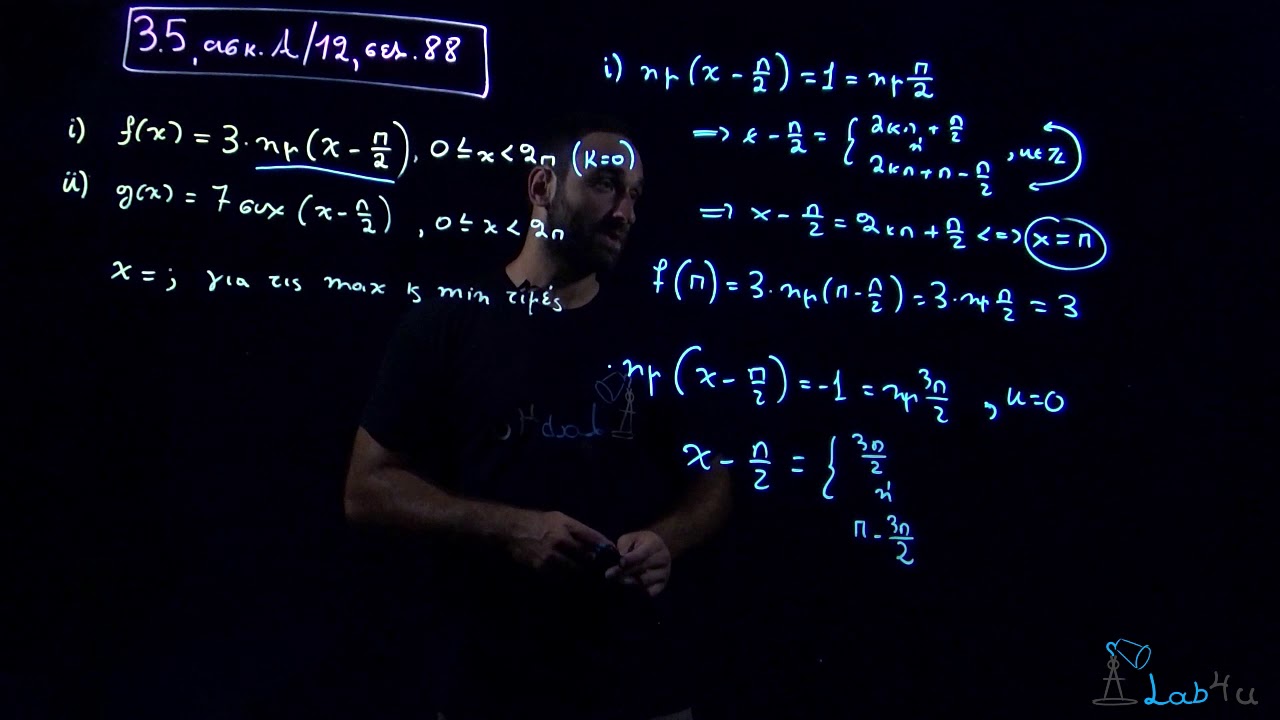 3.5, ασκ. Α/12, σελ. 88
i) f(x) = 3·ημ(x - π/2), 0 ≤ x < 2π (κ=0)
ii) g(x) = 7συν(x - π/2), 0 ≤ x < 2π
x = ; για τις max κ min τιμές
i) ημ(x - π/2) = 1 = ημ π/2
=> x - π/2 = { 2κπ + π/2
ή
2κπ + π - π/2 , κ∈ℤ
=> x - π/2 = 2κπ + π/2 <=> x = π
f(π) = 3·ημ(π - π/2) = 3·ημ π/2 = 3
· ημ(x - π/2) = -1 = ημ 3π/2 , κ=0
x - π/2 = { 3π/2
ή
π - 3π/2
Lab4u
Lab4u